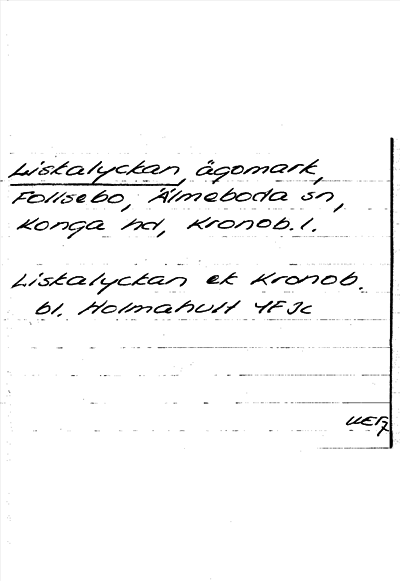 Liskalyckan, ägomark,
Follsebo, Älmeboda sn,
Konga hd, Kronob. l.
Liskalyckan ek Kronob.
bl. Holmahult 4F3c